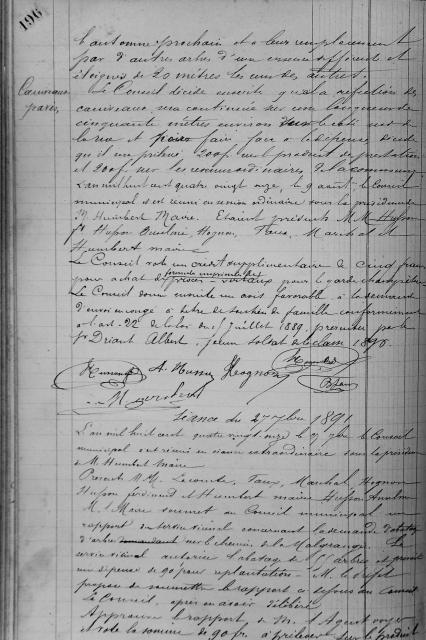 196
l'automne prochain et a leur remplacement
par d'autres arbres d'une essence différente et
éloignés de 20 mètres les uns des autres.
Caniveaux
pavés,
Le Conseil décide ensuite que la réfection des
caniveaux sera continuée sur une longueur de
cinquante mètres environ
la rue et pour faire face à la dépense décide
qu'il sera prélevé 200f sur le produit de prestation
et 200f sur les ressources ordinaires de la commune.
L'an mil huit cent quatre vingt onze, le 9 août le Conseil
municipal s'est réuni en session ordinaire sous la présidence
M. Humbert Maire. Etaient présents M.M. Husson
fd Husson Hognon, Faux, Marchal et
Humbert maire
Le Conseil vote un crédit supplémentaire de cinq francs
pour achat de formules imprimées
procès-verbaux pour le garde champêtre
Le Conseil donne ensuite un avis favorable à la demande
d'envoi en congé à titre de soutien de famille conformément
à l'art. 22 de la loi du 15 Juillet 1889, présentée par le
Sr Driant Albert, jeune soldat de la classe 1890.
A. Husson Hognon
Séance du 27 7bre 1891
L'an mil huit cent quatre vingt onze le 27 7bre le Conseil
municipal s'est réuni en séance extraordinaire sous la présidence
de M. Humbert Maire
Présents M.M. Lecomte, Faux, Marchal, Hognon
Husson ferdinand et Humbert maire Husson Anselme
M. le Maire soumet au Conseil municipal un
rapport du service vicinal concernant la demande d'abatage
d'arbres sur le chemin de la Malgrange. Le
service vicinal autorise l'abatage des arbres et prévoit
une dépense de 90f pour replantation. M. le Préfet
propose de soumettre le rapport ci dessus au Conseil
Le Conseil, après en avoir délibéré
Approuve le rapport de M. l'Agent voyer
et vote la somme de 90 fr. à prélever sur le produit